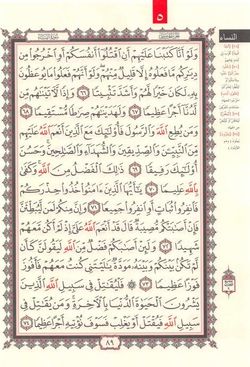 ٥
النساء
وَلَوْ أَنَّا كَتَبْنَا عَلَيْهِمْ أَنِ اقْتُلُوا أَنفُسَكُمْ أَوِ اخْرُجُوا مِن
دِيَارِكُم مَّا فَعَلُوهُ إِلَّا قَلِيلٌ مِّنْهُمْ وَلَوْ أَنَّهُمْ فَعَلُوا مَا يُوعَظُونَ
بِهِ لَكَانَ خَيْرًا لَّهُمْ وَأَشَدَّ تَثْبِيتًا ٦٦ وَإِذًا لَّآتَيْنَاهُم مِّن
لَّدُنَّا أَجْرًا عَظِيمًا ٦٧ وَلَهَدَيْنَاهُمْ صِرَاطًا مُّسْتَقِيمًا ٦٨
وَمَن يُطِعِ اللَّهَ وَالرَّسُولَ فَأُولَٰئِكَ مَعَ الَّذِينَ أَنْعَمَ اللَّهُ عَلَيْهِم
مِّنَ النَّبِيِّينَ وَالصِّدِّيقِينَ وَالشُّهَدَاءِ وَالصَّالِحِينَ وَحَسُنَ
أُولَٰئِكَ رَفِيقًا ٦٩ ذَٰلِكَ الْفَضْلُ مِنَ اللَّهِ وَكَفَىٰ
بِاللَّهِ عَلِيمًا ٧٠ يَا أَيُّهَا الَّذِينَ آمَنُوا خُذُوا حِذْرَكُمْ
فَانفِرُوا ثُبَاتٍ أَوِ انفِرُوا جَمِيعًا ٧١ وَإِنَّ مِنكُمْ لَمَن لَّيُبَطِّئَنَّ
فَإِنْ أَصَابَتْكُم مُّصِيبَةٌ قَالَ قَدْ أَنْعَمَ اللَّهُ عَلَيَّ إِذْ لَمْ أَكُن مَّعَهُمْ
شَهِيدًا ٧٢ وَلَئِنْ أَصَابَكُمْ فَضْلٌ مِّنَ اللَّهِ لَيَقُولَنَّ كَأَن
لَّمْ تَكُن بَيْنَكُمْ وَبَيْنَهُ مَوَدَّةٌ يَا لَيْتَنِي كُنتُ مَعَهُمْ فَأَفُوزَ
فَوْزًا عَظِيمًا ٧٣ فَلْيُقَاتِلْ فِي سَبِيلِ اللَّهِ الَّذِينَ
يَشْرُونَ الْحَيَاةَ الدُّنْيَا بِالْآخِرَةِ وَمَن يُقَاتِلْ فِي
سَبِيلِ اللَّهِ فَيُقْتَلْ أَوْ يَغْلِبْ فَسَوْفَ نُؤْتِيهِ أَجْرًا عَظِيمًا ٧٤
٨٩